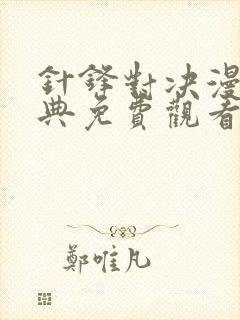 針鋒對決漫
典免費觀看
鄭唯凡